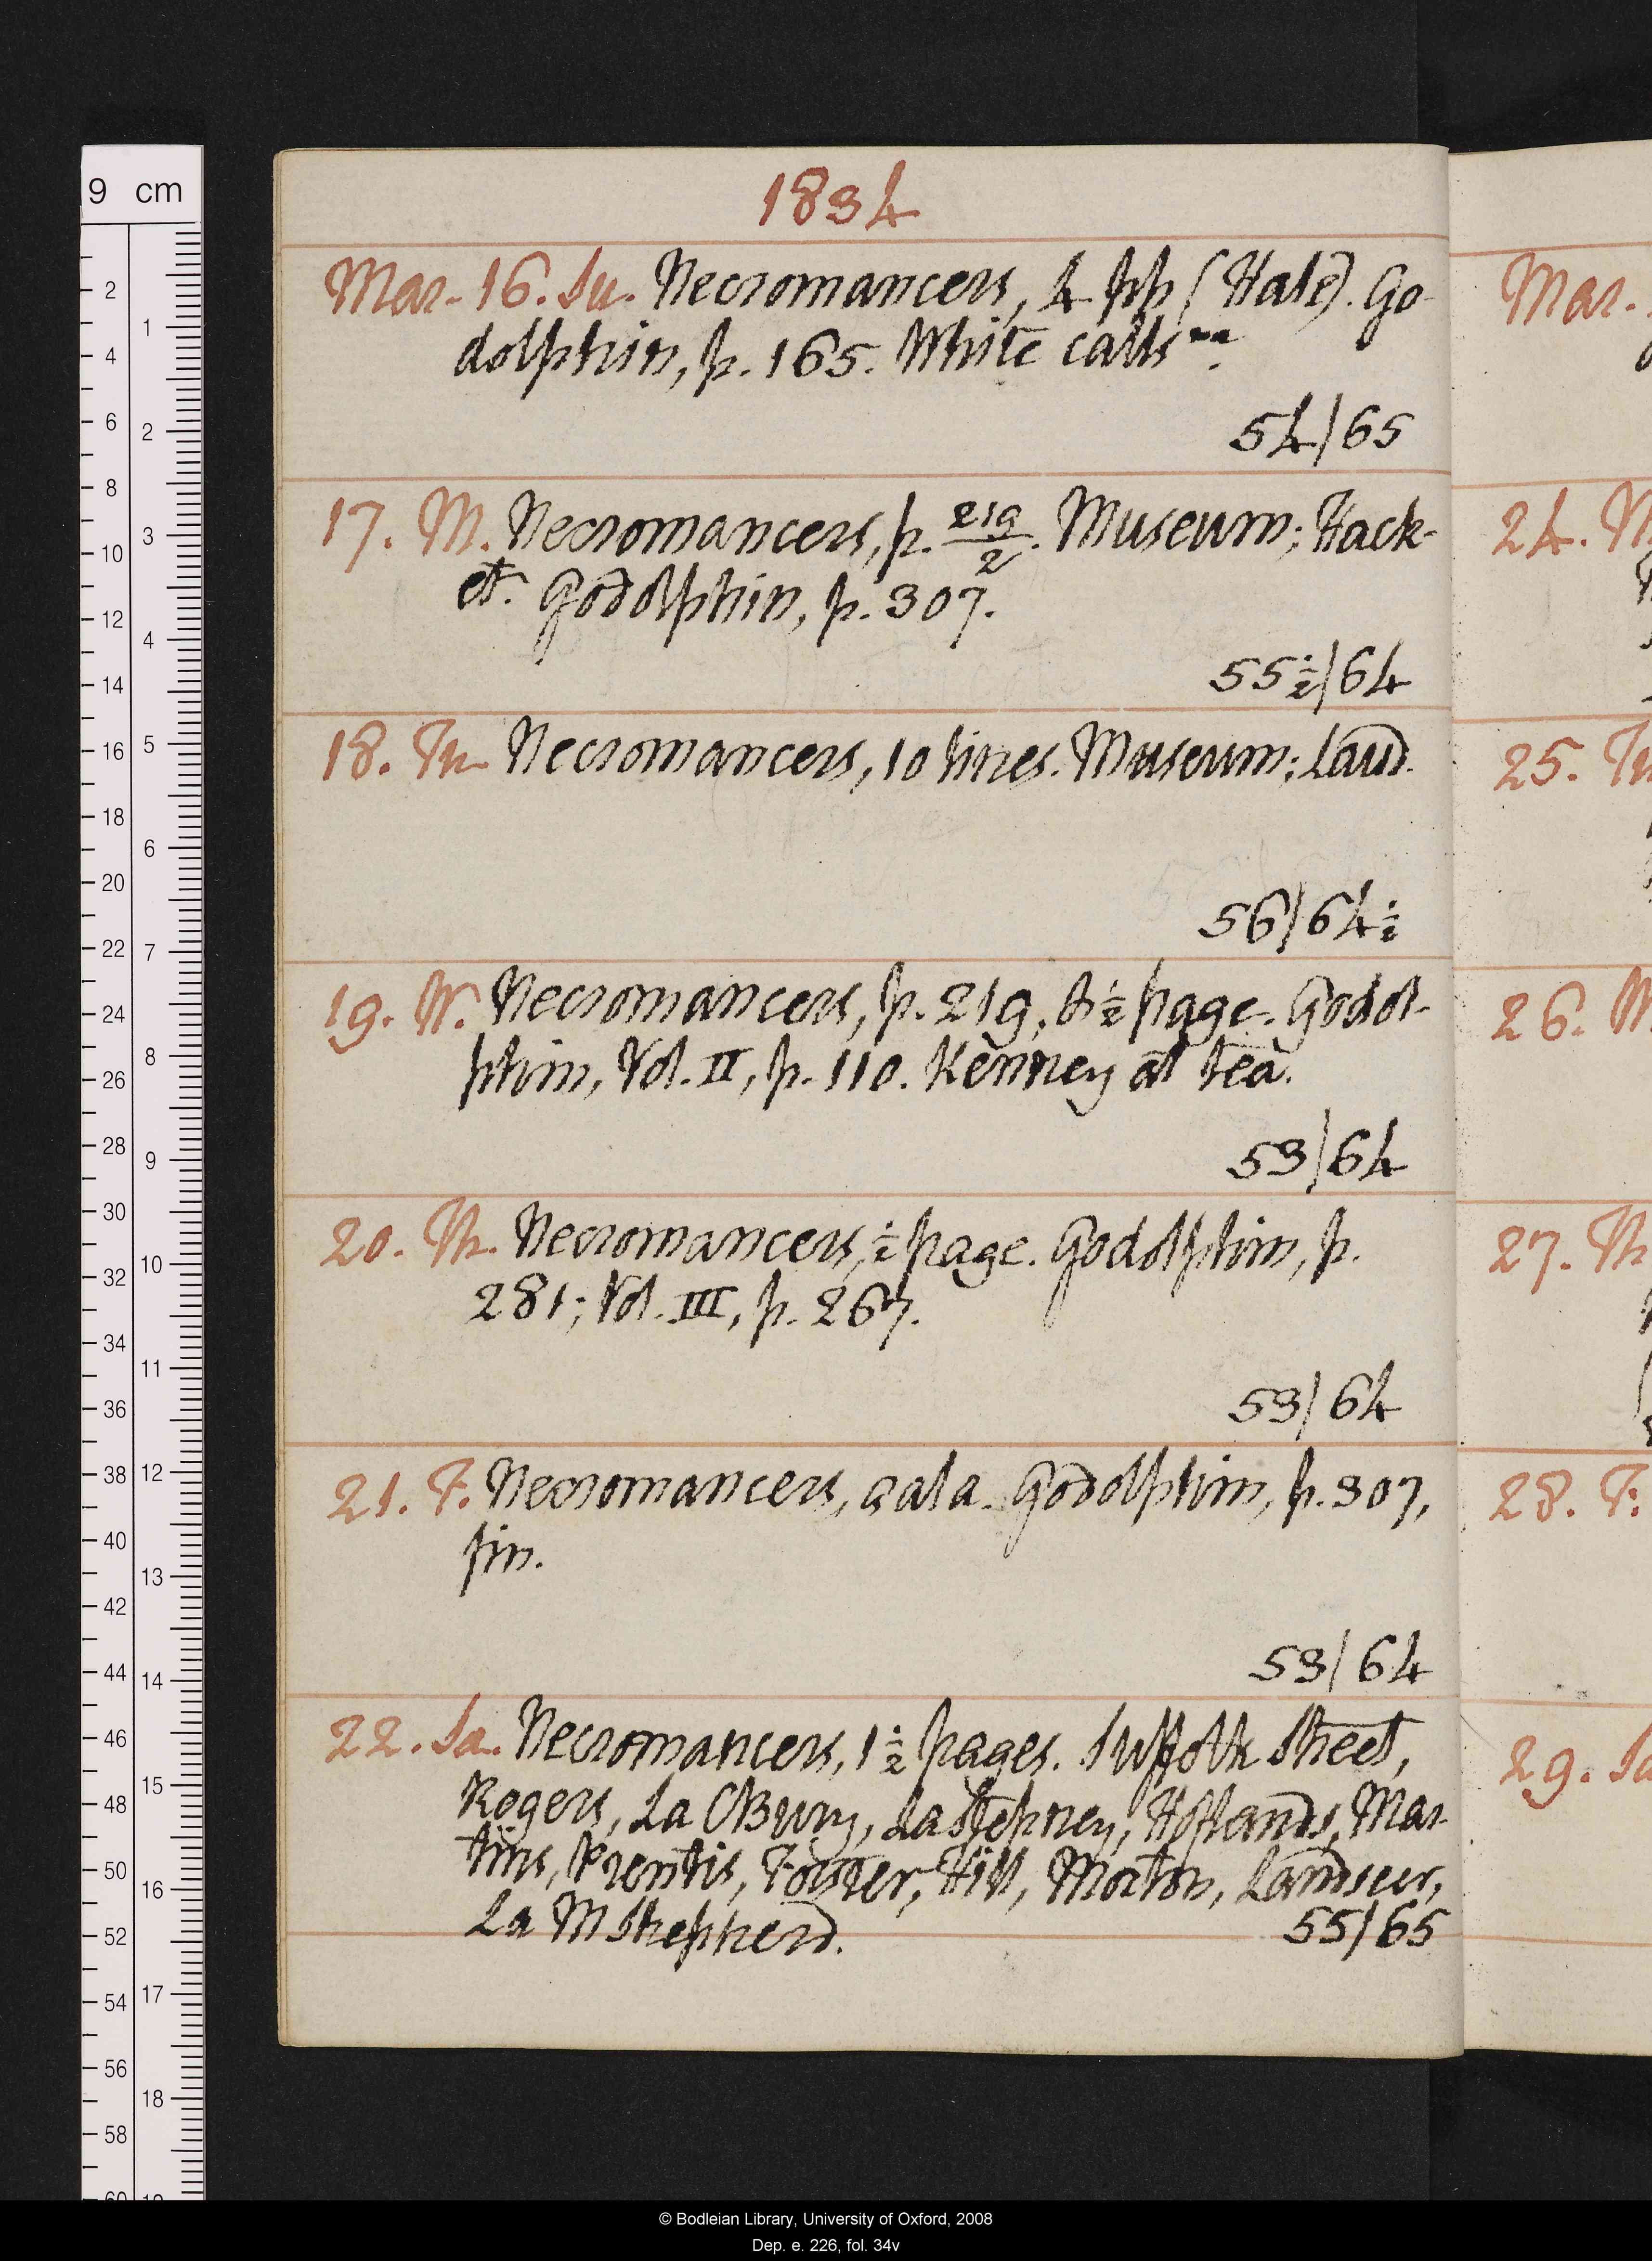 1834
Mar. 16. Su. Necromancers, 4 pp (Hale). Go-
dolphin, p. 165. White calls na.
54/65
17. M. Necromancers, p. 219/2. Museum; Hack-
et. Godolphin, p. 307.
55½/64
18. Tu. Necromancers, 10 lines. Museum; Laud.
56/64½
19. W. Necromancers, p. 219, & ½ page. Godol-
phin, Vol. II, p. 110. Kenney at tea.
53/64
20. Th. Necromancers, ½ page. Godolphin, p.
281; Vol. III, p. 267.
53/64
21. F. Necromancers, çala. Godolphin, p. 307,
fin.
53/64
22. Sa. Necromancers, 1½ pages. Suffolk Street,
Rogers, La CBury, La Stepney, Hoflands, Mar-
tins, Prentis, Forster, Hill, Morton, Landseer,
La M Shepherd.
55/65
Mar.
24. M
25. Tu
26. W
27. Th
28. F.
29. Sa
9 cm
2
4
6
8
10
12
14
16
18
20
22
24
26
28
30
32
34
36
38
40
42
44
46
48
50
52
54
56
58
60
1
2
3
4
5
6
7
8
9
10
11
12
13
14
15
16
17
18
19
© Bodleian Library, University of Oxford, 2008
Dep. e. 226, fol. 34v